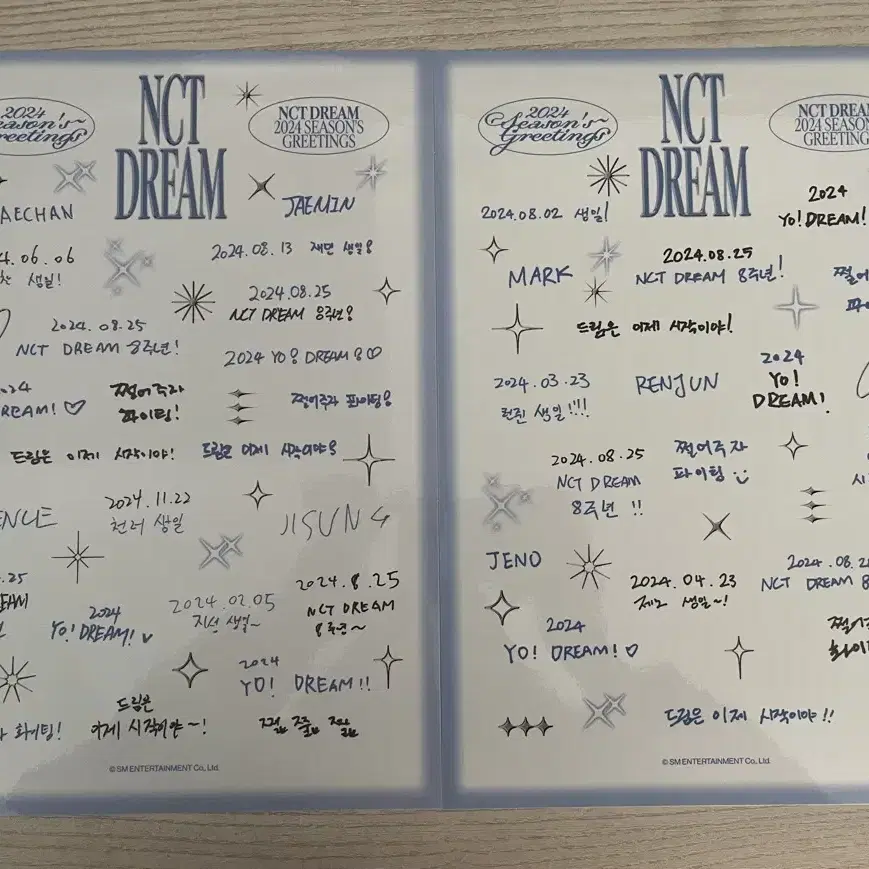 2024
Season's
Greetings
NCT
DREAM
NCT DREAM
2024 SEASON'S
GREETINGS
AECHAN
JAEMIN
4.06.06
찬 생일!
2024.08.13 재민 생일!
2024.08.25
NCT DREAM 8주년!
2024.08.25
NCT DREAM 8주년!
2024 YO! DREAM!♡
024
REAM!♡
쩔어주자
파이팅!
쩔어주자 파이팅!
드림은 이제 시작이야!
드림은 이제 시작이야!
ENLE
2024.11.22
천러 생일
JISUNG
.25
EAM
2024
YO! DREAM!
2024.02.05
지성 생일~
2024.8.25
NCT DREAM
8주년~
2024
YO! DREAM!!
화이팅!
드림은
이제 시작이야~!
쩔 쥴 쟈
© SM ENTERTAINMENT Co., Ltd.
2024
Season's
Greetings
NCT
DREAM
NCT DREAM
2024 SEASON'S
GREETINGS
2024.08.02 생일!
2024
YO! DREAM!
MARK
2024.08.25
NCT DREAM 8주년!
쩔어
파이
드림은 이제 시작이야!
2024.03.23
런쥔 생일!!!
RENJUN
2024
YO!
DREAM!
2024.08.25
NCT DREAM
8주년 !!
쩔어주자
파이팅
시
JENO
2024.04.23
제노 생일~!
2024.08.2
NCT DREAM 8
2024
YO! DREAM!♡
쩔어주
화이
드림은 이제 시작이야!!
© SM ENTERTAINMENT Co., Ltd.